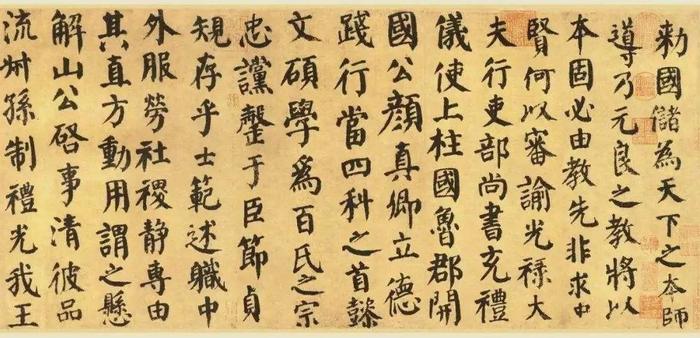 勅國儲為天下之本師
導乃元良之教將以
本固必由教先非求中
賢何以審諭光祿大
夫行吏部尚書充禮
儀使上柱國魯郡開
國公顏真卿立德
踐行當四科之首懿
文碩學爲百氏之宗
忠讜罄于臣節貞
規存乎士範述職中
外服勞社稷靜專由
其直方動用謂之懸
解山公啓事清彼品
流叔孫制禮光我王